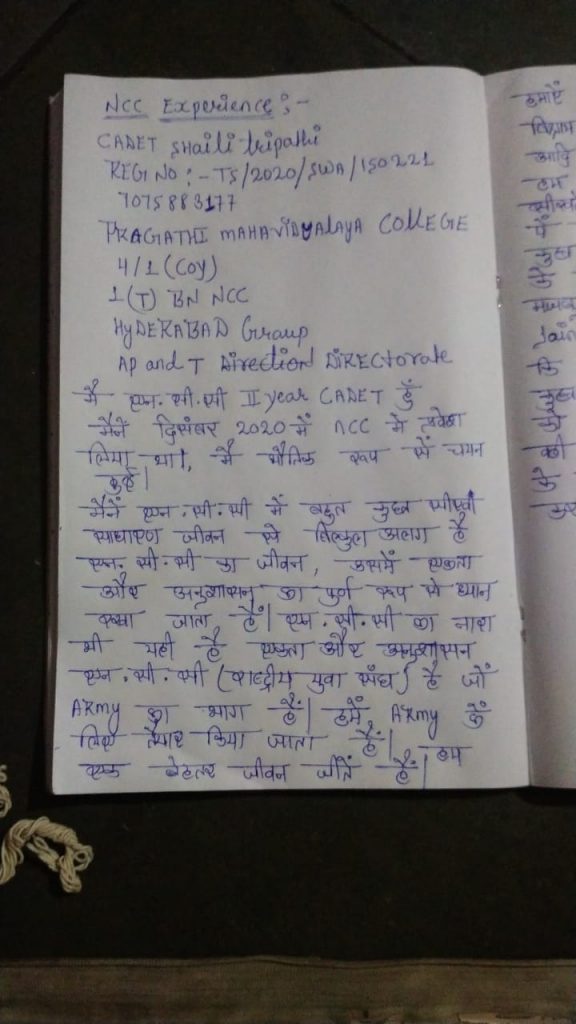 NCC Experience :-
CADET Shaili tripathi
REG NO :- TS/2020/SWA/150221
7075883177
PRAGATHI MAHAVIDYALAYA COLLEGE
4/1 (COY)
1(T) BN NCC
HYDERABAD Group
AP and T Direction DIRECTorate
मै एन.सी.सी II year CADET हुँ
मैनें दिसंबर 2020 में NCC में प्रवेश
लिया था।, मै भौतिक रूप से चयन
हुई।
मैनें एन.सी.सी में बहुत कुछ सीखा
साधारण जीवन से बिल्कुल अलग है
एन.सी.सी का जीवन, उसमें एकता
और अनुशासन का पुर्ण रूप से ध्यान
रखा जाता हैं। एन.सी.सी का नारा
भी यही है एकता और अनुशासन
एन.सी.सी (राष्ट्रीय युवा संघ) है जों
ARMY का भाग हैं। हमें, ARMY कें
लिए तैयार किया जाता हैं। हम
एक बेहतर जीवन जीतें हैं।
हमाएँ
आदि
हम
में
कुछ
कें
Join
कि
कुछ
को
की
के